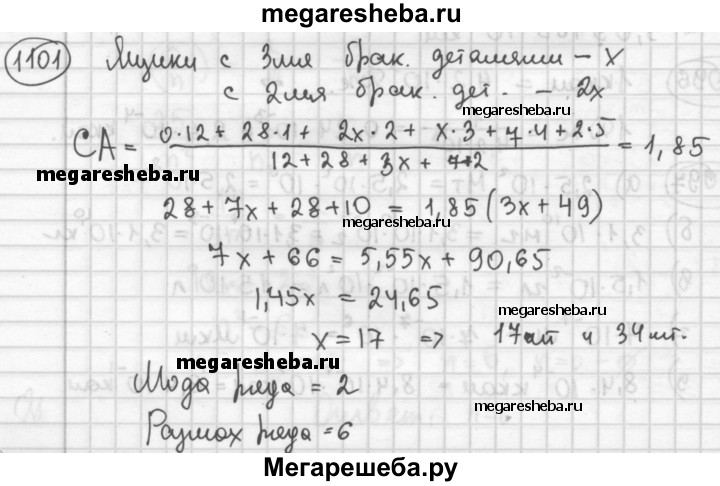 megaresheba.ru
1101 Ящики с 3мя брак. деталями – x
с 2мя брак. дет. – 2x
megaresheba.ru
CA = (0·12 + 28·1 + 2x·2 + x·3 + 7·4 + 2·5) / (12 + 28 + 3x + 7+2) = 1,85
megaresheba.ru
28 + 7x + 28 + 10 = 1,85 (3x + 49)
megaresheba.ru
7x + 66 = 5,55x + 90,65
1,45x = 24,65
megaresheba.ru
x = 17 => 17шт и 34шт.
megaresheba.ru
Мода ряда = 2
megaresheba.ru
Размах ряда = 6
Мегарешеба.ру